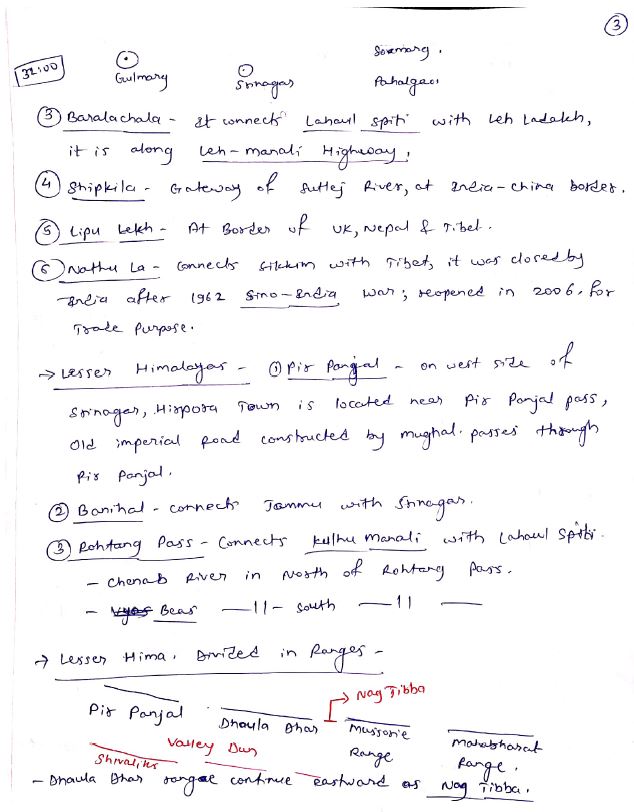 3
Sonemarg.
32:00
Gulmarg
Srinagar
Pahalgaon
③ Baralachala - It connects Lahaul Spiti with Leh Ladakh,
it is along Leh-manali Highway,
④ Shipkila - Gateway of Sutlej River, at India-china border.
⑤ Lipu Lekh - At Border of UK, Nepal & Tibet.
⑥ Nathu La - connects Sikkim with Tibet, it was closed by
India after 1962 Sino-India War; reopened in 2006. for
Trade Purpose.
→ Lesser Himalayas - ① Pir Panjal - on west side of
Srinagar, Hirpora Town is located near Pir Panjal pass,
Old imperial Road constructed by mughal. passes through
Pir Panjal.
② Banihal - connects Jammu with Srinagar.
③ Rohtang Pass - Connects Kulhu Manali with Lahaul Spiti.
- Chenab River in North of Rohtang Pass.
- Vyas Beas —11- South —11 —
→ Lesser Hima. Divided in Ranges -
→ Nag Tibba
Pir Panjal Dhaula Dhar Mussorie Range Mahabharat Range.
Shivaliks Valley Dun
- Dhaula Dhar range continue eastward as Nag Tibba.